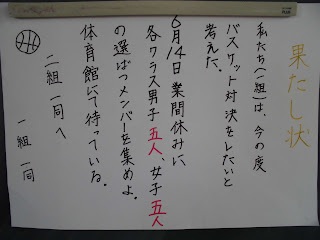 果たし状
私たち(一組)は、今の度
バスケット対決をしたいと
考えた。
6月14日業間休みに、
各クラス男子五人、女子五人
の選ばつメンバーを集めよ。
体育館にて待っている。
二組一同へ
一組一同